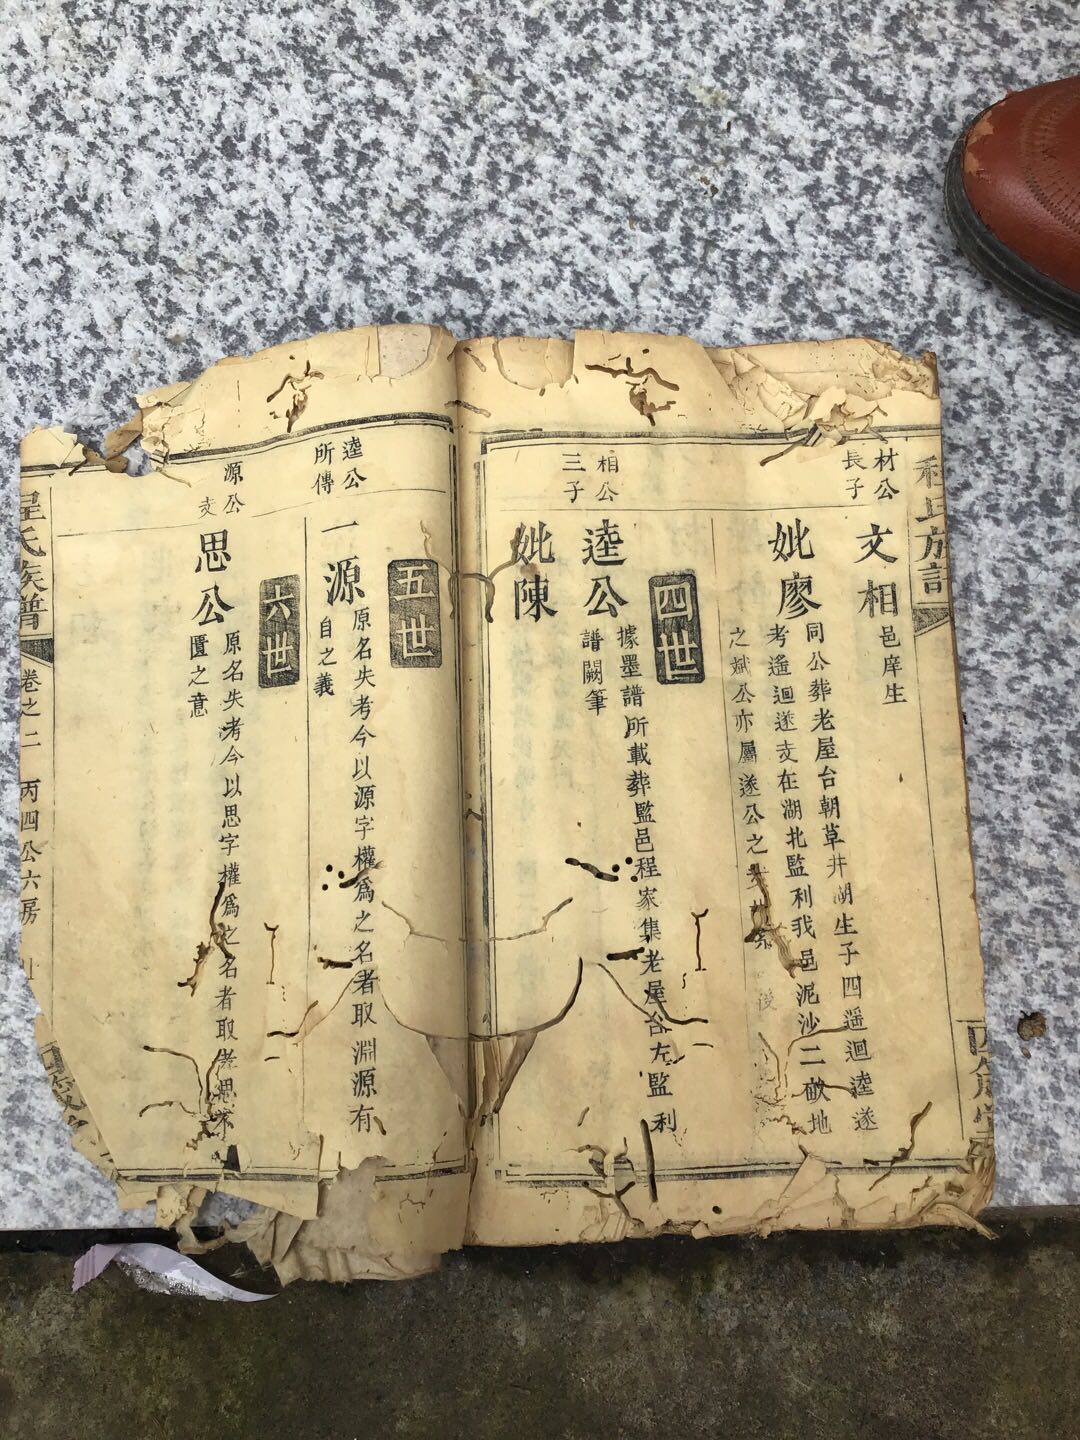 程氏族譜
材公
長子
文相
邑庠生
妣廖
同公葬老屋台朝草井湖生子四遥迴逵遂
考遙迴遂支在湖北監利我邑泥沙二畝地
之斌公亦屬遂公之
後
四世
相公
三子
逵公
據墨譜所載葬監邑程家集老屋台左監利
譜闕筆
妣陳
五世
逵公
所傳
一源
原名失考今以源字權爲之名者取淵源有
自之義
六世
源公
支
思公
原名失考今以思字權爲之名者取孝思不
匱之意
程氏族譜
卷之二
丙四公六房